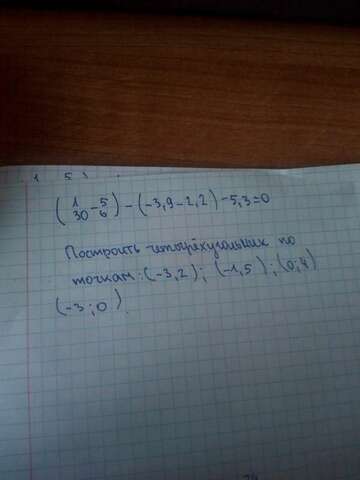 (1/30 - 5/6) - (-3,9 - 2,2) - 5,3 = 0
Построить четырёхугольник по
точкам: (-3,2); (-1,5); (0;4)
(-3;0).